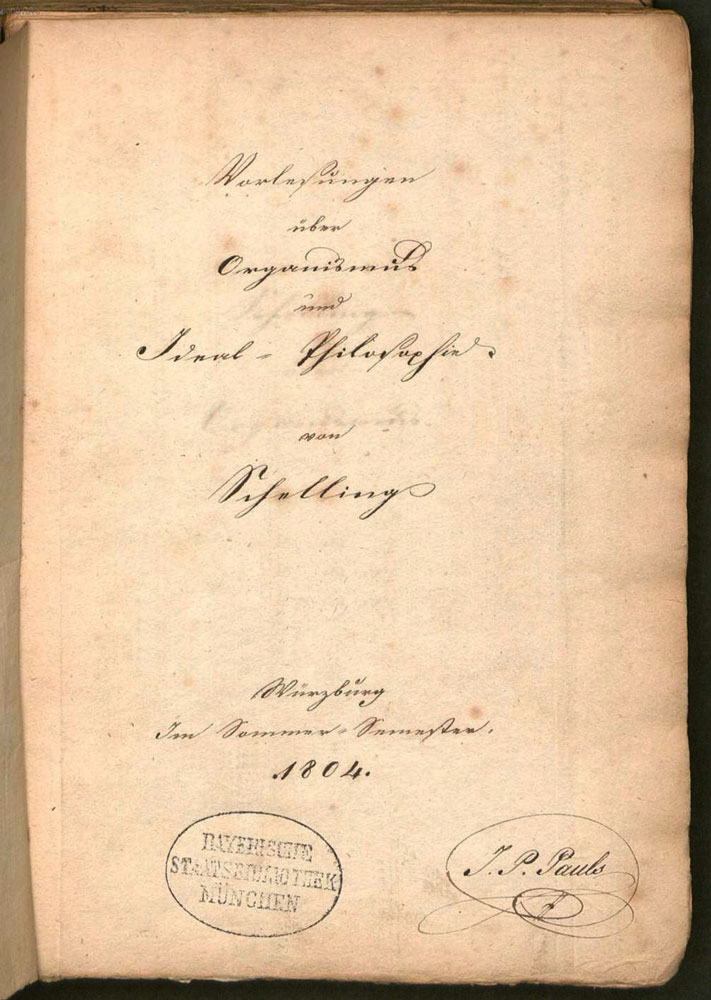 Vorlesungen
über
Organismus
und
Ideal - Philosophie.
von
Schelling
Würzburg
Im Sommer-Semester.
1804.
BAYERISCHE
STAATSBIBLIOTHEK
MÜNCHEN
J. P. Pauls